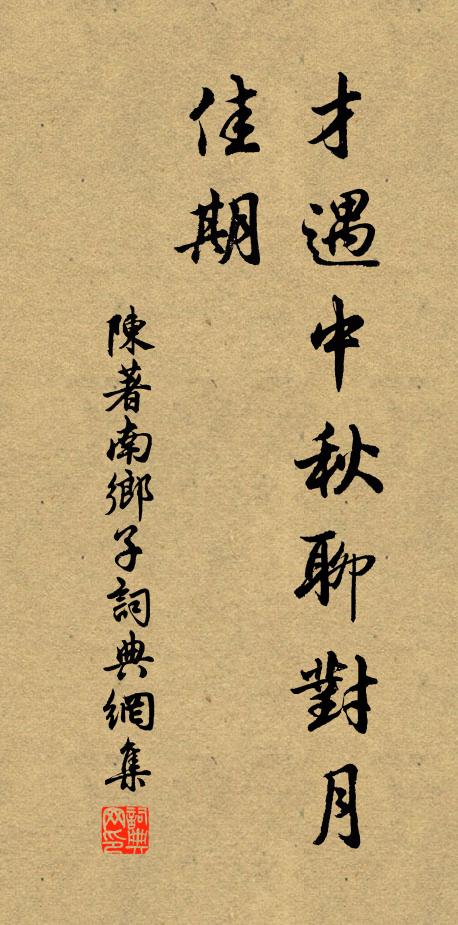 才遇中秋聊對月
佳期
陳著南鄉子詞典網集
詞典
网印